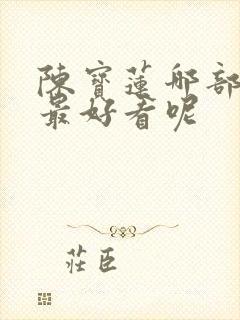 陳寶蓮那部
最好看呢
莊臣